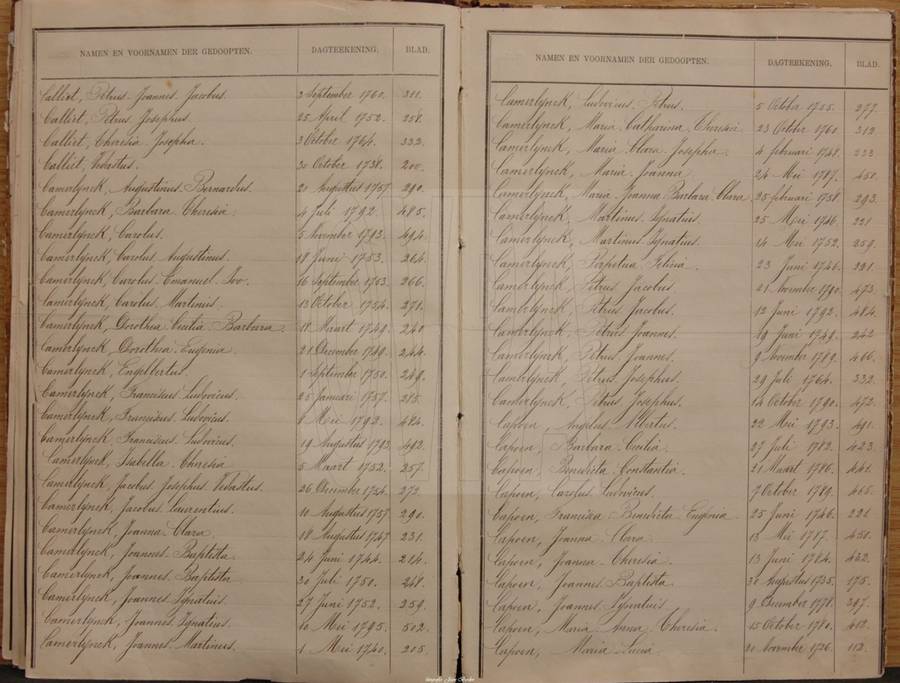 NAMEN EN VOORNAMEN DER GEDOOPTEN. DAGTEEKENING. BLAD.
Calliet, Petrus Joannes Jacobus. 2 September 1760. 311.
Calliet, Petrus Josephus. 25 April 1752. 258.
Calliet, Theresia Josepha. 3 October 1764. 332.
Calliet, Vedastus. 30 October 1738. 200.
Camerlynck, Augustinus Bernardus. 20 Augustus 1757. 290.
Camerlynck, Barbara Theresia. 4 Juli 1792. 485.
Camerlynck, Carolus. 5 November 1793. 494.
Camerlynck, Carolus Augustinus. 18 Juni 1753. 264.
Camerlynck, Carolus Emanuel Ivo. 16 September 1753. 266.
Camerlynck, Carolus Martinus. 13 October 1754. 271.
Camerlynck, Dorothea Cecilia Barbara. 18 Maart 1749. 240
Camerlynck, Dorothea Eugenia. 21 December 1749. 244.
Camerlynck, Engelbertus. 1 September 1750. 249.
Camerlynck, Franciscus Ludovicus. 25 Januari 1757. 285.
Camerlynck, Franciscus Ludovicus. Mei 1792. 484.
Camerlynck, Franciscus Ludovicus. 19 Augustus 1793. 492.
Camerlynck, Isabella Theresia. 5 Maart 1752. 257.
Camerlynck, Jacobus Josephus Vedastus. 26 December 1754. 272.
Camerlynck, Jacobus Laurentius. 10 Augustus 1757. 290.
Camerlynck, Joanna Clara. 18 Augustus 1747. 231.
Camerlynck, Joannes Baptista. 24 Juni 1744. 214.
Camerlynck, Joannes Baptista. 30 Juli 1750. 248.
Camerlynck, Joannes Ignatius. 27 Juni 1752. 259.
Camerlynck, Joannes Ignatius. 10 Mei 1795. 502.
Camerlynck, Joannes Martinus. 1 Mei 1740. 205.
NAMEN EN VOORNAMEN DER GEDOOPTEN. DAGTEEKENING. BLAD.
Camerlynck, Ludovicus Petrus. 5 Octob. 1755. 277.
Camerlynck, Maria Catharina Theresia. 23 October 1760. 312.
Camerlynck, Maria Clara Josepha. 4 februari 1748. 233.
Camerlynck, Maria Joanna. 24 Mei 1787. 450.
Camerlynck, Maria Joanna Barbara Clara. 25 februari 1758. 293.
Camerlynck, Martinus Ignatius. 25 Mei 1746. 221.
Camerlynck, Martinus Ignatius. 24 Mei 1752. 259.
Camerlynck, Perpetua Felicia. 23 Juni 1746. 221.
Camerlynck, Petrus Jacobus. 21 November 1790. 473.
Camerlynck, Petrus Jacobus. 12 Juni 1792. 484.
Camerlynck, Petrus Joannes. 19 Juni 1749. 242.
Camerlynck, Petrus Joannes. 9 November 1789. 466.
Camerlynck, Petrus Josephus. 29 Juli 1764. 332.
Camerlynck, Petrus Josephus. 14 October 1790. 472.
Capoen, Angelus Albertus. 22 Mei 1793. 491.
Capoen, Barbara Cecilia. 27 Juli 1782. 423.
Capoen, Benedicta Constantia. 21 Maart 1786. 441.
Capoen, Carolus Ludovicus. 7 October 1789. 465.
Capoen, Francisca Benedicta Eugenia. 25 Juni 1746. 221.
Capoen, Joanna Clara. 13 Mei 1787. 450.
Capoen, Joanna Theresia. 13 Juni 1784. 432.
Capoen, Joannes Baptista. 30 Augustus 1735. 175.
Capoen, Joannes Ignatius. 9 December 1778. 397.
Capoen, Maria Anna Theresia. 15 October 1780. 412.
Capoen, Maria Lucia. 20 November 1726. 112.